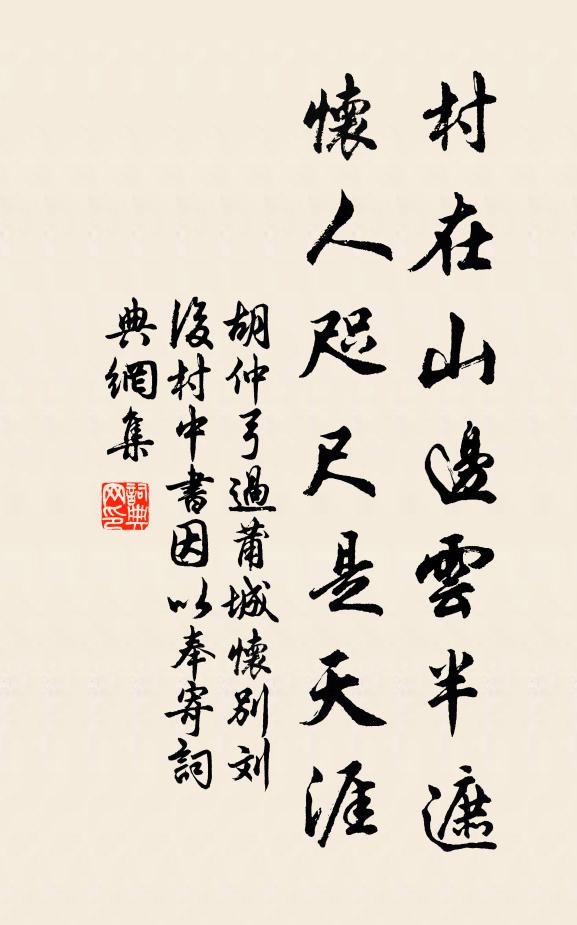 村在山邊雲半遮
懷人咫尺是天涯
胡仲弓過莆城懷別刘
後村中書因以奉寄詞
典網集
詞典
网印